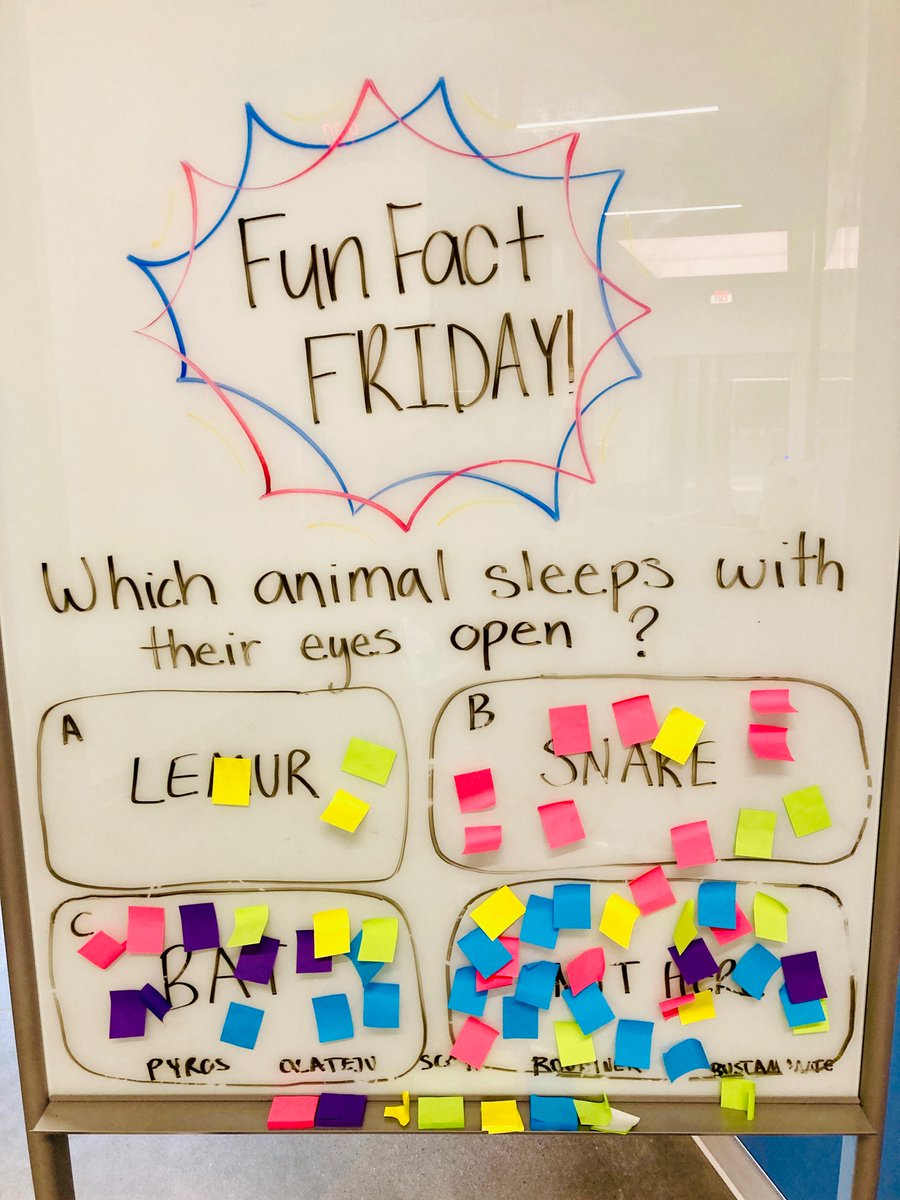 Fun Fact
FRIDAY!
Which animal sleeps with
their eyes open ?
A
LEMUR
B
SNAKE
C
BAT
PYROS OLATEJU